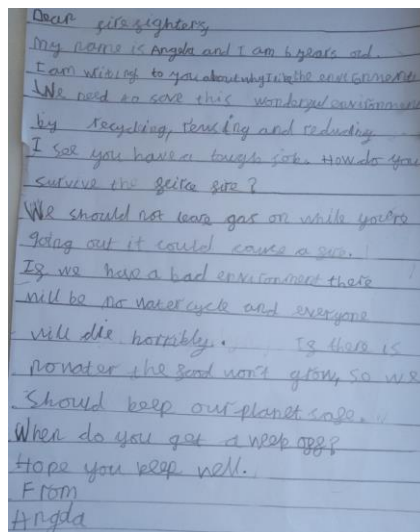 Dear firefighters,
My name is Angela and I am 6 years old.
I am writing to you about why I like the environment
We need to save this wonderful environment
by recycling, reusing and reducing
I see you have a tough job. How do you
survive the feirce fire?
We should not leave gas on while you're
going out it could cause a fire.
If we have a bad environment there
will be no water cycle and everyone
will die horribly. If there is
no water the food won't grow, so we
should keep our planet safe.
When do you get a week off?
Hope you keep well.
From
Angela